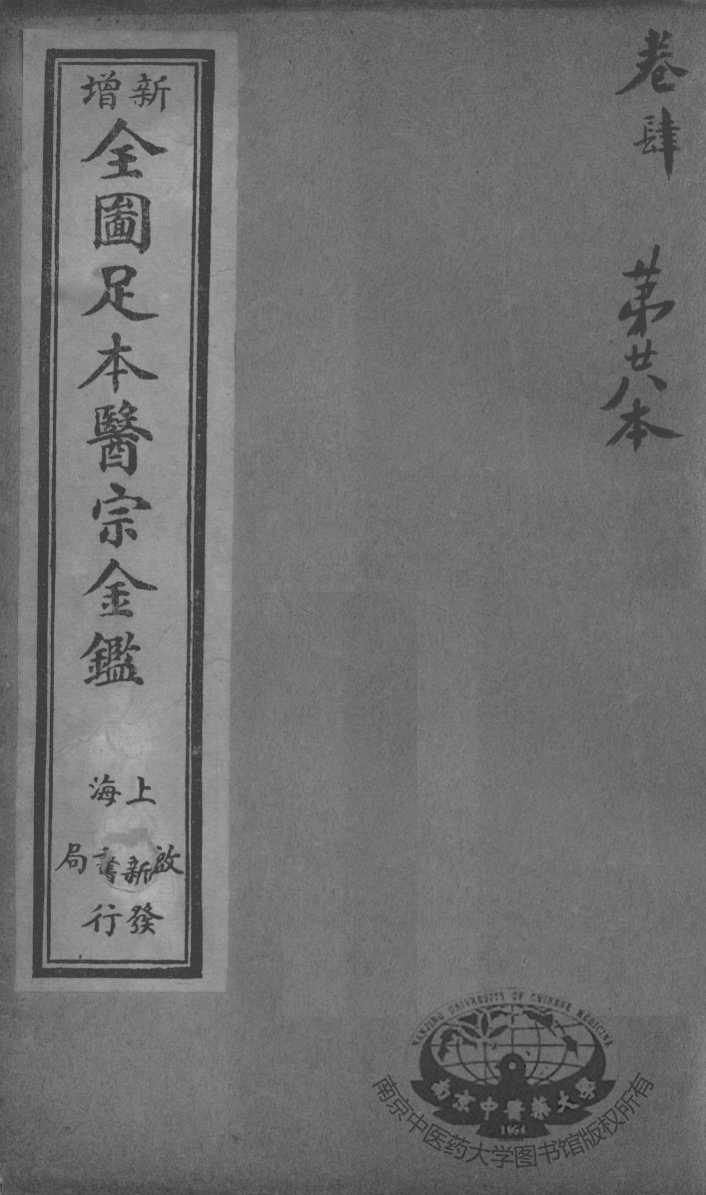 卷肆
第廿八本
新增
全圖足本醫宗金鑑
上海
啟新書局
發行
NANJING UNIVERSITY OF CHINESE MEDICINE
南京中醫藥大學
1954
南京中医药大学图书馆版权所有